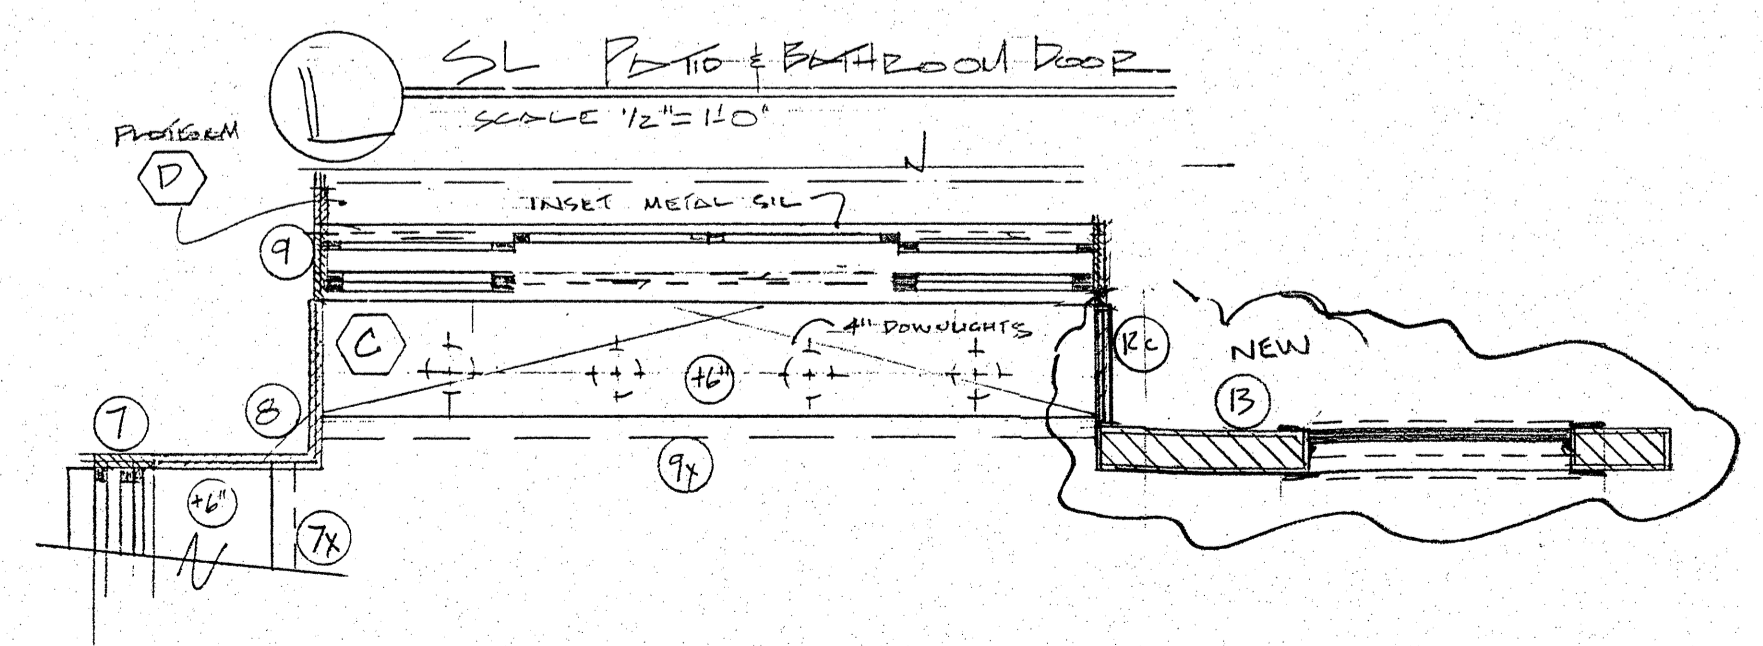 L
SL PATIO & BATHROOM DOOR
SCALE 1/2"=1'-0"
PLATFORM
D
INSET METAL SIL
9
C
4" DOWNLIGHTS
+6"
12c
NEW
13
8
7
9x
+6"
7x